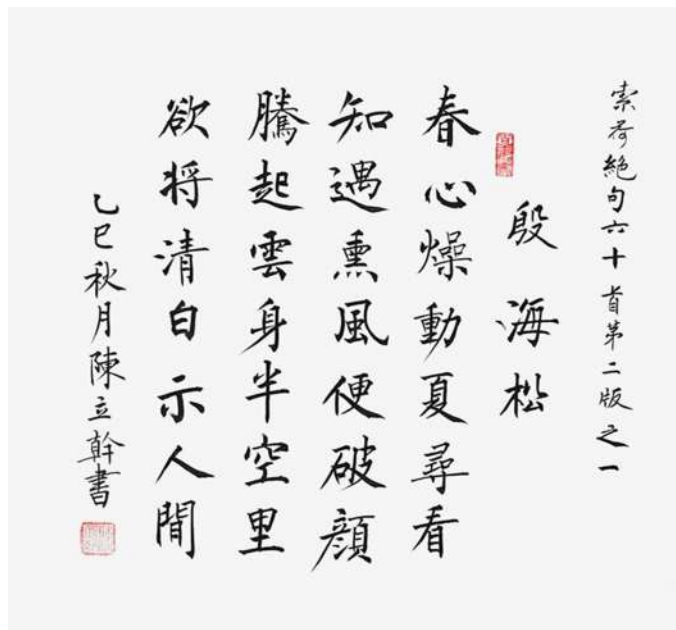 索荷絕句六十首第二版之一
殷海松
春心燥動夏尋看
知遇熏風便破顏
騰起雲身半空里
欲將清白示人間
乙巳秋月陳立幹書